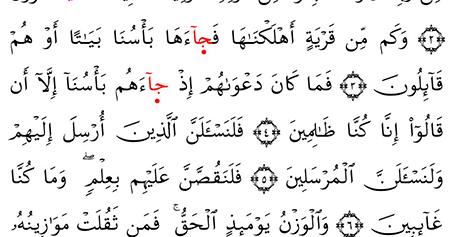 ٢ وَكَم مِّن قَرْيَةٍ أَهْلَكْنَٰهَا فَجَآءَهَا بَأْسُنَا بَيَٰتًا أَوْ هُمْ
قَآئِلُونَ ٣ فَمَا كَانَ دَعْوَىٰهُمْ إِذْ جَآءَهُم بَأْسُنَآ إِلَّآ أَن
قَالُوٓا۟ إِنَّا كُنَّا ظَٰلِمِينَ ٤ فَلَنَسْـَٔلَنَّ ٱلَّذِينَ أُرْسِلَ إِلَيْهِمْ
وَلَنَسْـَٔلَنَّ ٱلْمُرْسَلِينَ ٥ فَلَنَقُصَّنَّ عَلَيْهِم بِعِلْمٍۖ وَمَا كُنَّا
غَآئِبِينَ ٦ وَٱلْوَزْنُ يَوْمَئِذٍ ٱلْحَقُّۚ فَمَن ثَقُلَتْ مَوَٰزِينُهُۥ